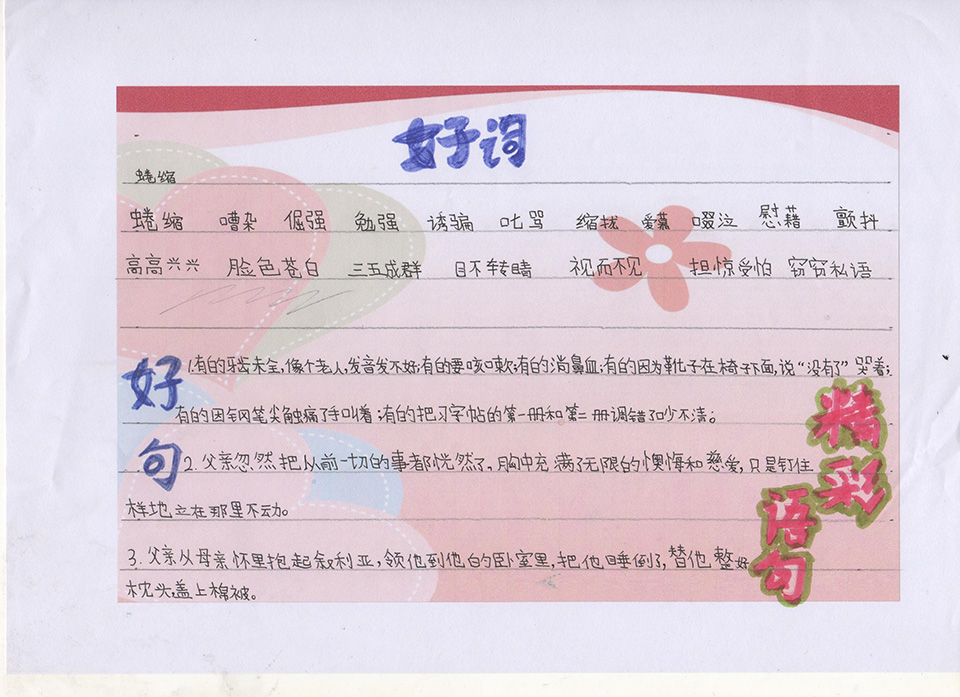 好词
蜷缩
蜷缩 嘈杂 倔强 勉强 诱骗 叱骂 缩拢 爱慕 啜泣 慰藉 颤抖
高高兴兴 脸色苍白 三五成群 目不转睛 视而不见 担惊受怕 窃窃私语
好句
1.有的牙齿未全,像个老人,发音发不好;有的要咳嗽;有的淌鼻血;有的因为靴子在椅子下面,说“没有了”哭着;
有的因钢笔尖触痛了手叫着;有的把习字帖的第一册和第二册调错了吵不清。
2.父亲忽然把从前一切的事都恍然了,胸中充满了无限的懊悔和慈爱,只是钉住
样地立在那里不动。
3.父亲从母亲怀里抱起叙利亚,领他到他的卧室里,把他睡倒了,替他整好
枕头,盖上棉被。
精彩
语句